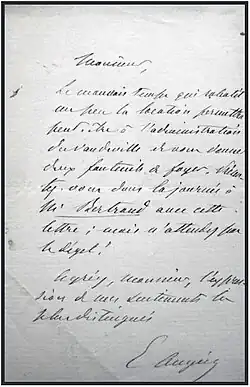 Monsieur,
Le mauvais temps qui ralentit
un peu la location permettra
peut-être à l'administration
du Vaudeville de vous donner
deux fauteuils de foyer. Présen
tez-vous dans la journée à
Mr Bertrand avec cette
lettre ; mais n'attendez pas
le dégel !
Agréez, monsieur, l'expres
sion de mes sentiments les
plus distingués
E Augier